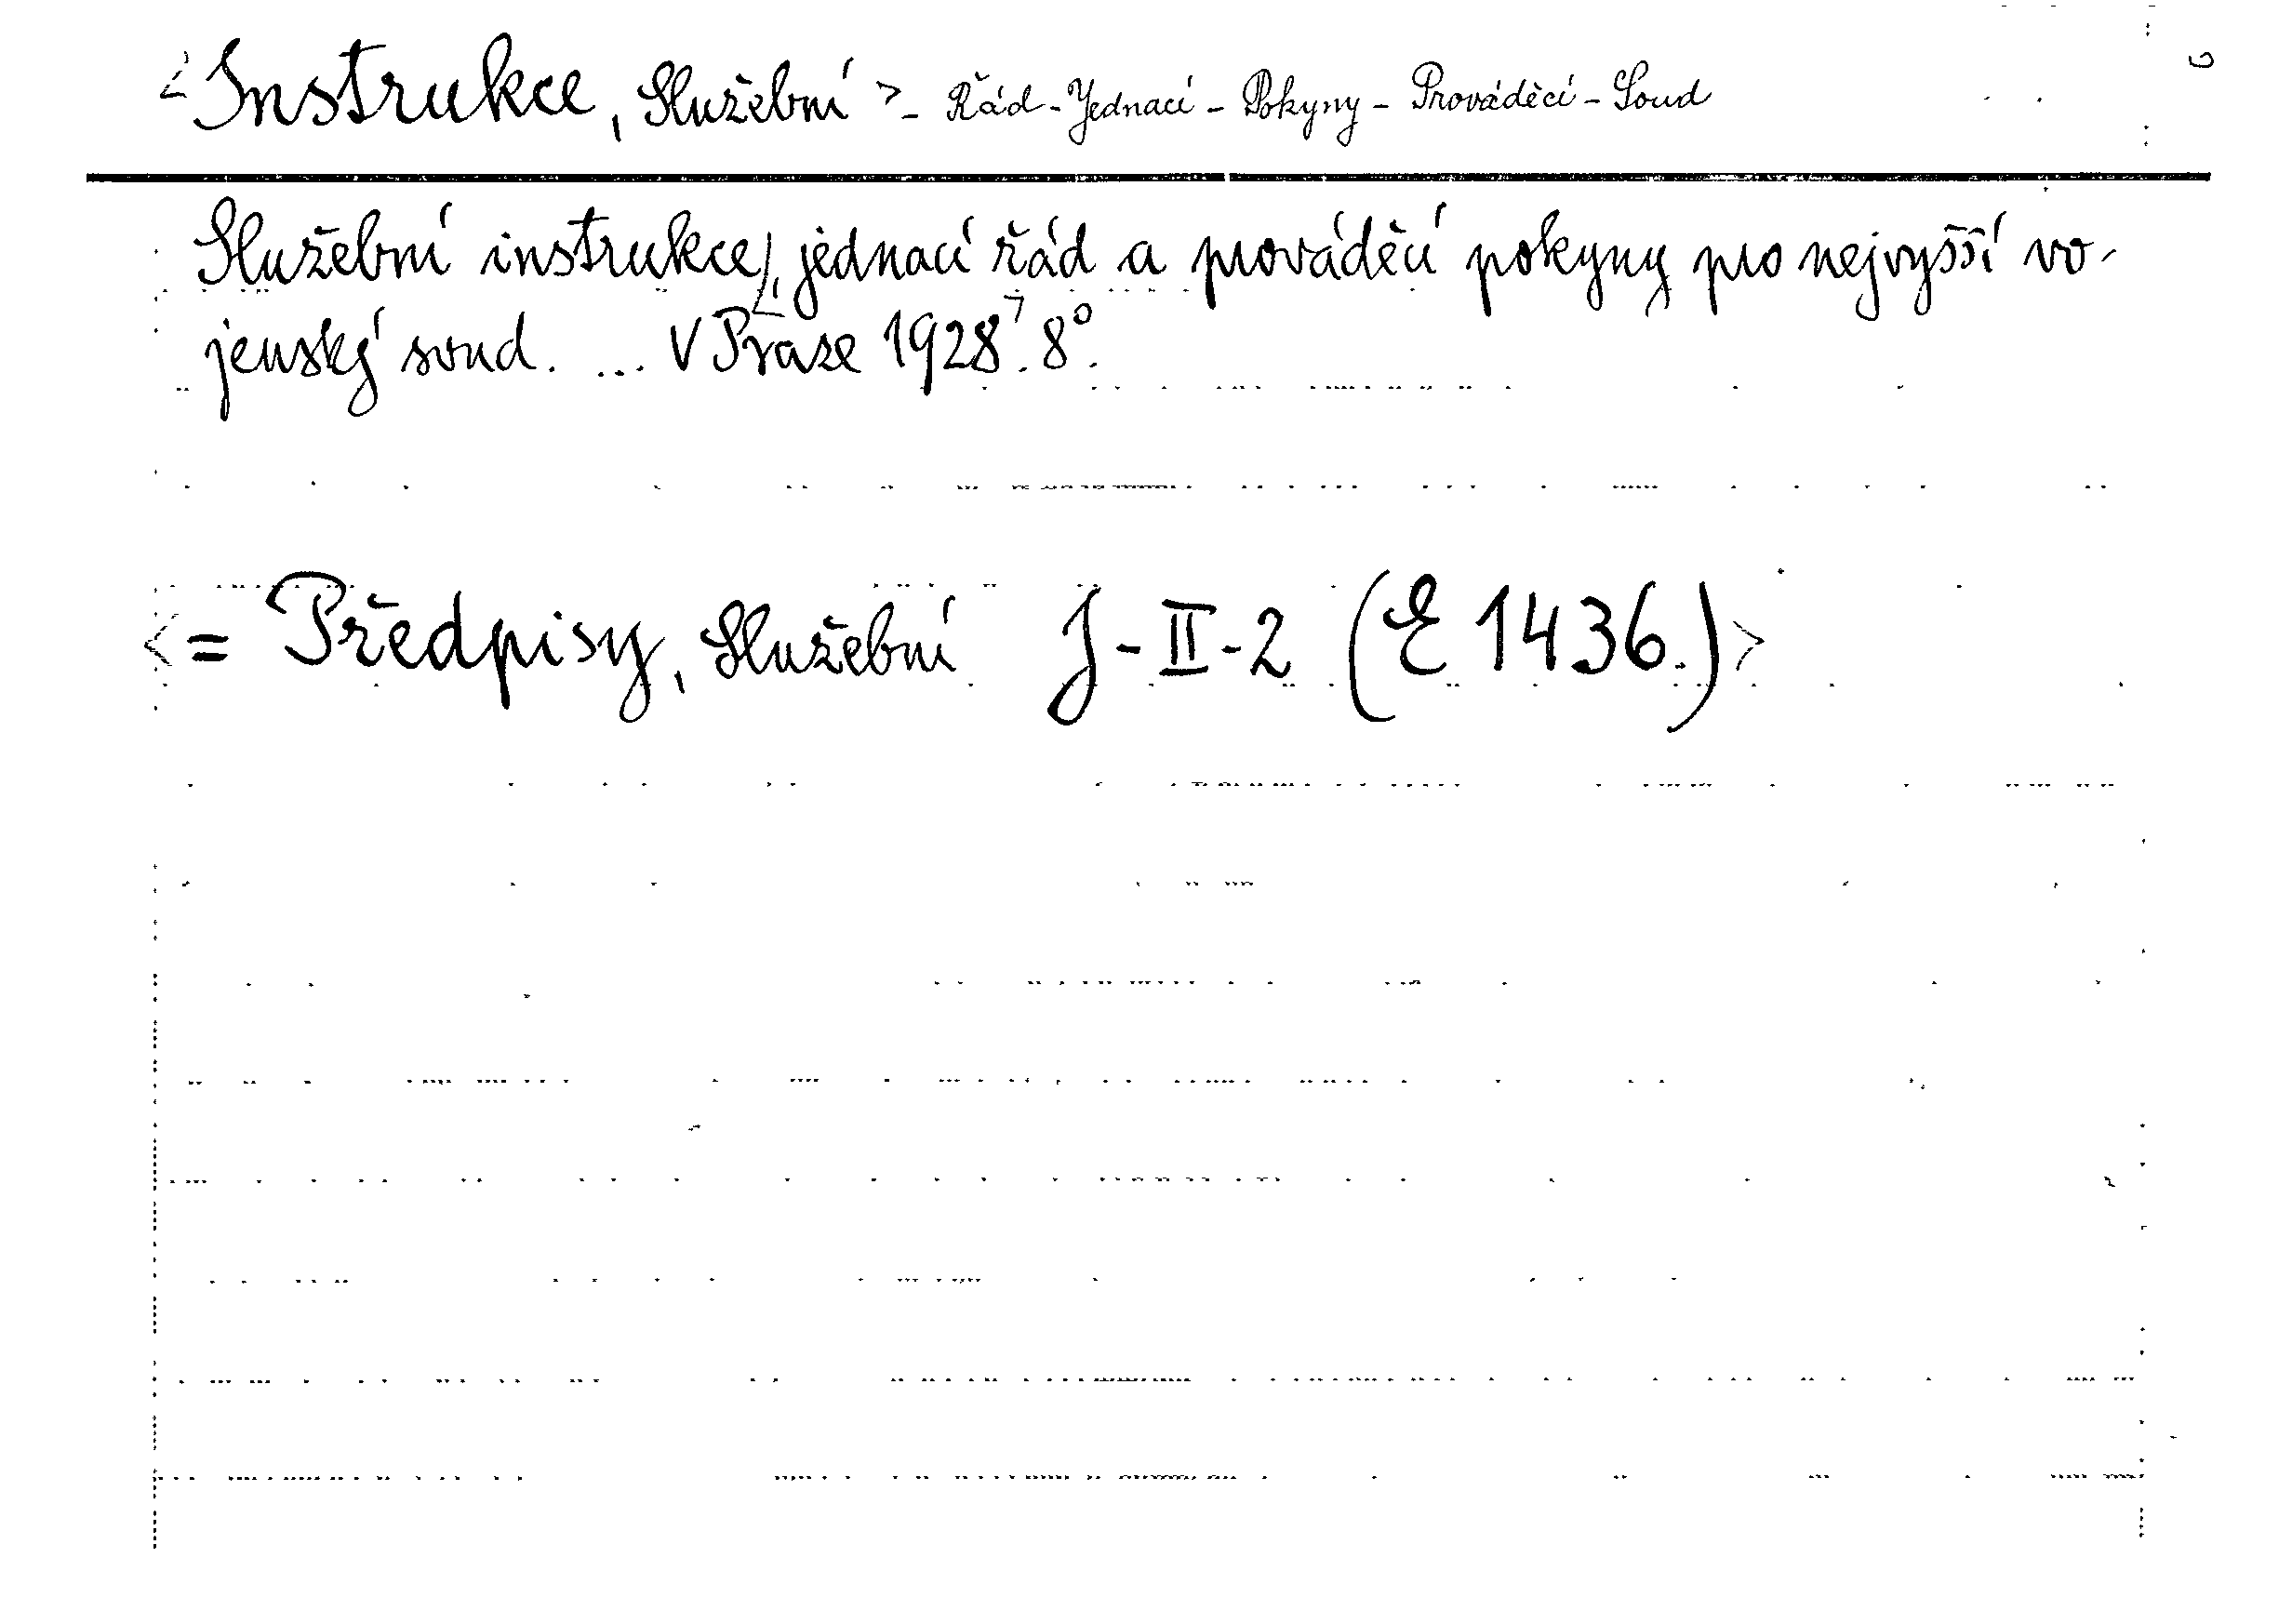 <Instrukce, Služební> - Řád - Jednací - Pokyny - Prováděcí - Soud
Služební instrukce, jednací řád a prováděcí pokyny pro nejvyšší vo-
jenský soud. ... V Praze 1928. 8°.
<= Předpisy, Služební J-II-2 (E 1436.)>